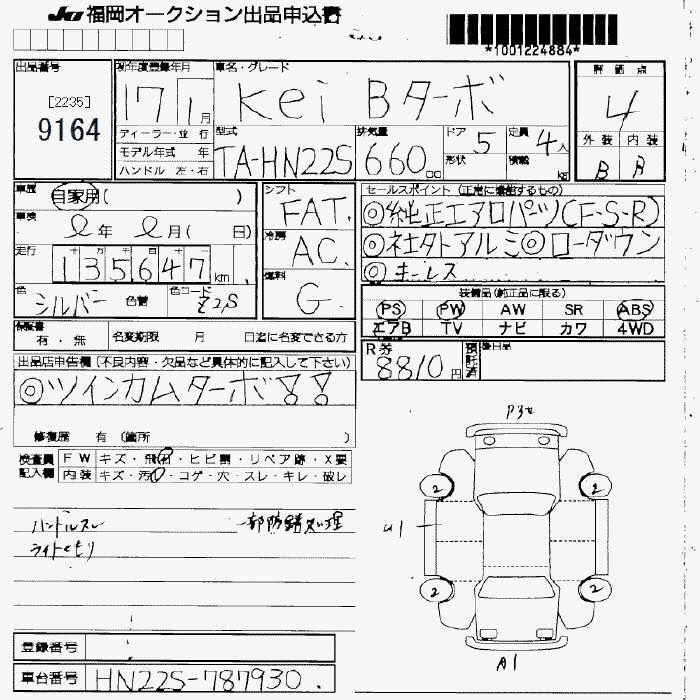 JU 福岡オークション出品申込書
*1001224884*
出品番号
[2235]
9164
初年度登録年月
17 1月
ディーラー・並 行
モデル年式 年
ハンドル 左・右
車名・グレード
Kei Bターボ
型式
TA-HN22S
排気量
660cc
ドア 5
形状
定員 4人
積載 kg
評価点
4
外装 内装
B B
車歴
自家用( )
車検
年 月( 日)
走行
135647km
色
シルバー 色替
色コード Z2S
シフト
FAT.
冷房
AC.
燃料
G.
セールスポイント (正常に機能するもの)
◎純正エアロパーツ(F-S-R)
◎社外アルミ◎ローダウン
◎キーレス
装備品(純正品に限る)
PS PW AW SR ABS
エアB TV ナビ カワ 4WD
保証書
有・無
名変期限 月 日迄に名変できる方
R券
8810円
預託済
後日品
出品店申告欄 (不良内容・欠品など具体的に記入して下さい)
◎ツインカムターボ!!
修復歴 有 (箇所 )
検査員
記入欄
FW キズ・飛石・ヒビ割・リペア跡・X要
内装 キズ・汚れ・コゲ・穴・スレ・キレ・破レ
ハンドルスレ
一部防錆処理
ライトくもり
P3セ
2 2
U1
2 2
A1
登録番号
車台番号
HN22S-787930.